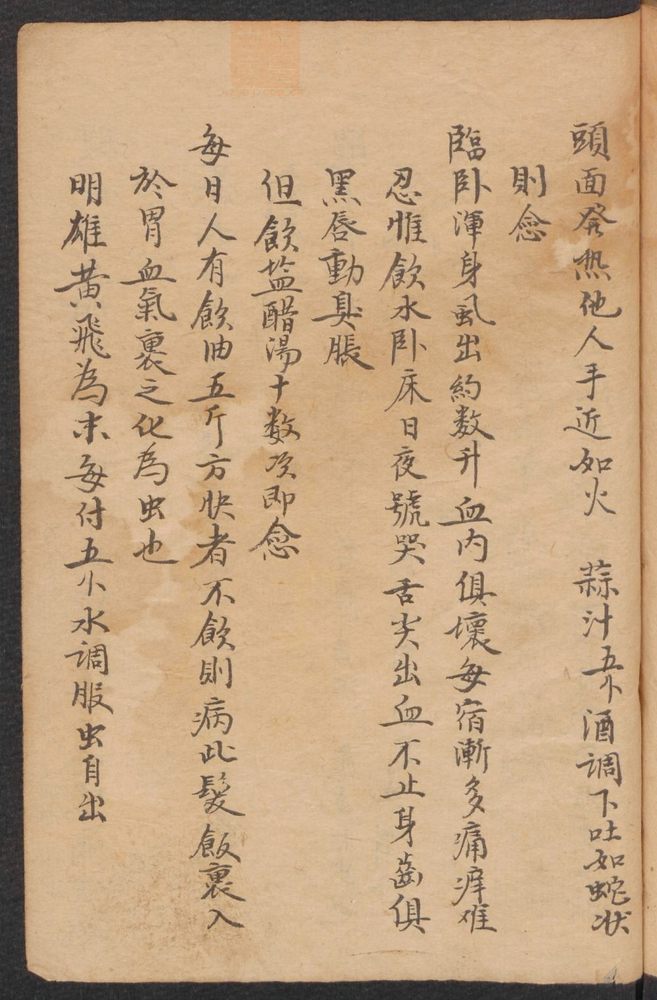 頭面發热他人手近如火　蒜汁五个酒調下吐如蛇状
則愈
臨卧渾身虱出約数升血肉俱壞每宿漸多痛痒难
忍惟飲水卧床日夜號哭舌尖出血不止身齒俱
黑唇動鼻脹
但飲塩醋湯十数次即愈
每日人有飲油五斤方快者不飲則病此髮飯裹入
於胃血氣裹之化為虫也
明雄黄飛為末每付五个水調服虫自出